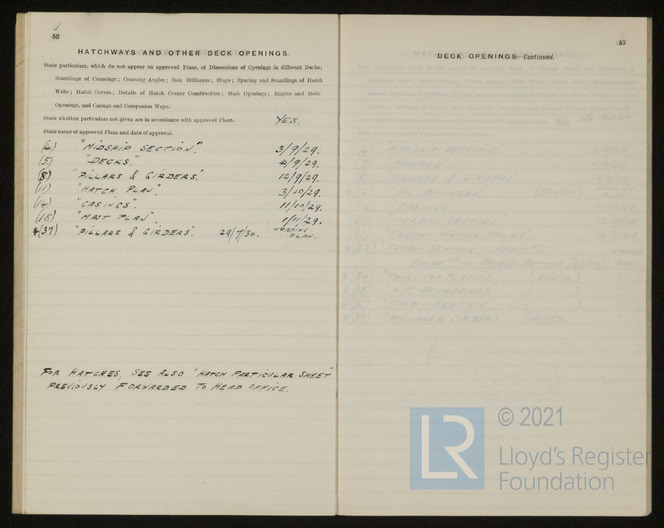 52
HATCHWAYS AND OTHER DECK OPENINGS.
State particulars, which do not appear on approved Plans, of Dimensions of Openings in different Decks;
Scantlings of Coamings; Coaming Angles; Side Stiffeners; Stays; Spacing and Scantlings of Hatch
Webs; Hatch Covers; Details of Hatch Corner Construction; Mast Openings; Engine and Boiler
Openings, and Casings and Companion Ways.
State whether particulars not given are in accordance with approved Plans. YES.
State name of approved Plans and date of approval.
(4) "MIDSHIP SECTION". 3/9/29.
(5) "DECKS" 4/9/29.
(8) "PILLARS & GIRDERS." 12/9/29.
(11) "HATCH PLAN". 3/10/29.
(14) "CASINGS". 11/10/29.
(18) "MAST PLAN". 1/11/29.
*(37) "PILLARS & GIRDERS". 29/7/30. WORKING PLAN.
FOR HATCHES, SEE ALSO "HATCH PARTICULAR SHEET"
PREVIOUSLY FORWARDED TO HEAD OFFICE.
53
DECK OPENINGS—Continued.
LR
© 2021
Lloyd's Register
Foundation